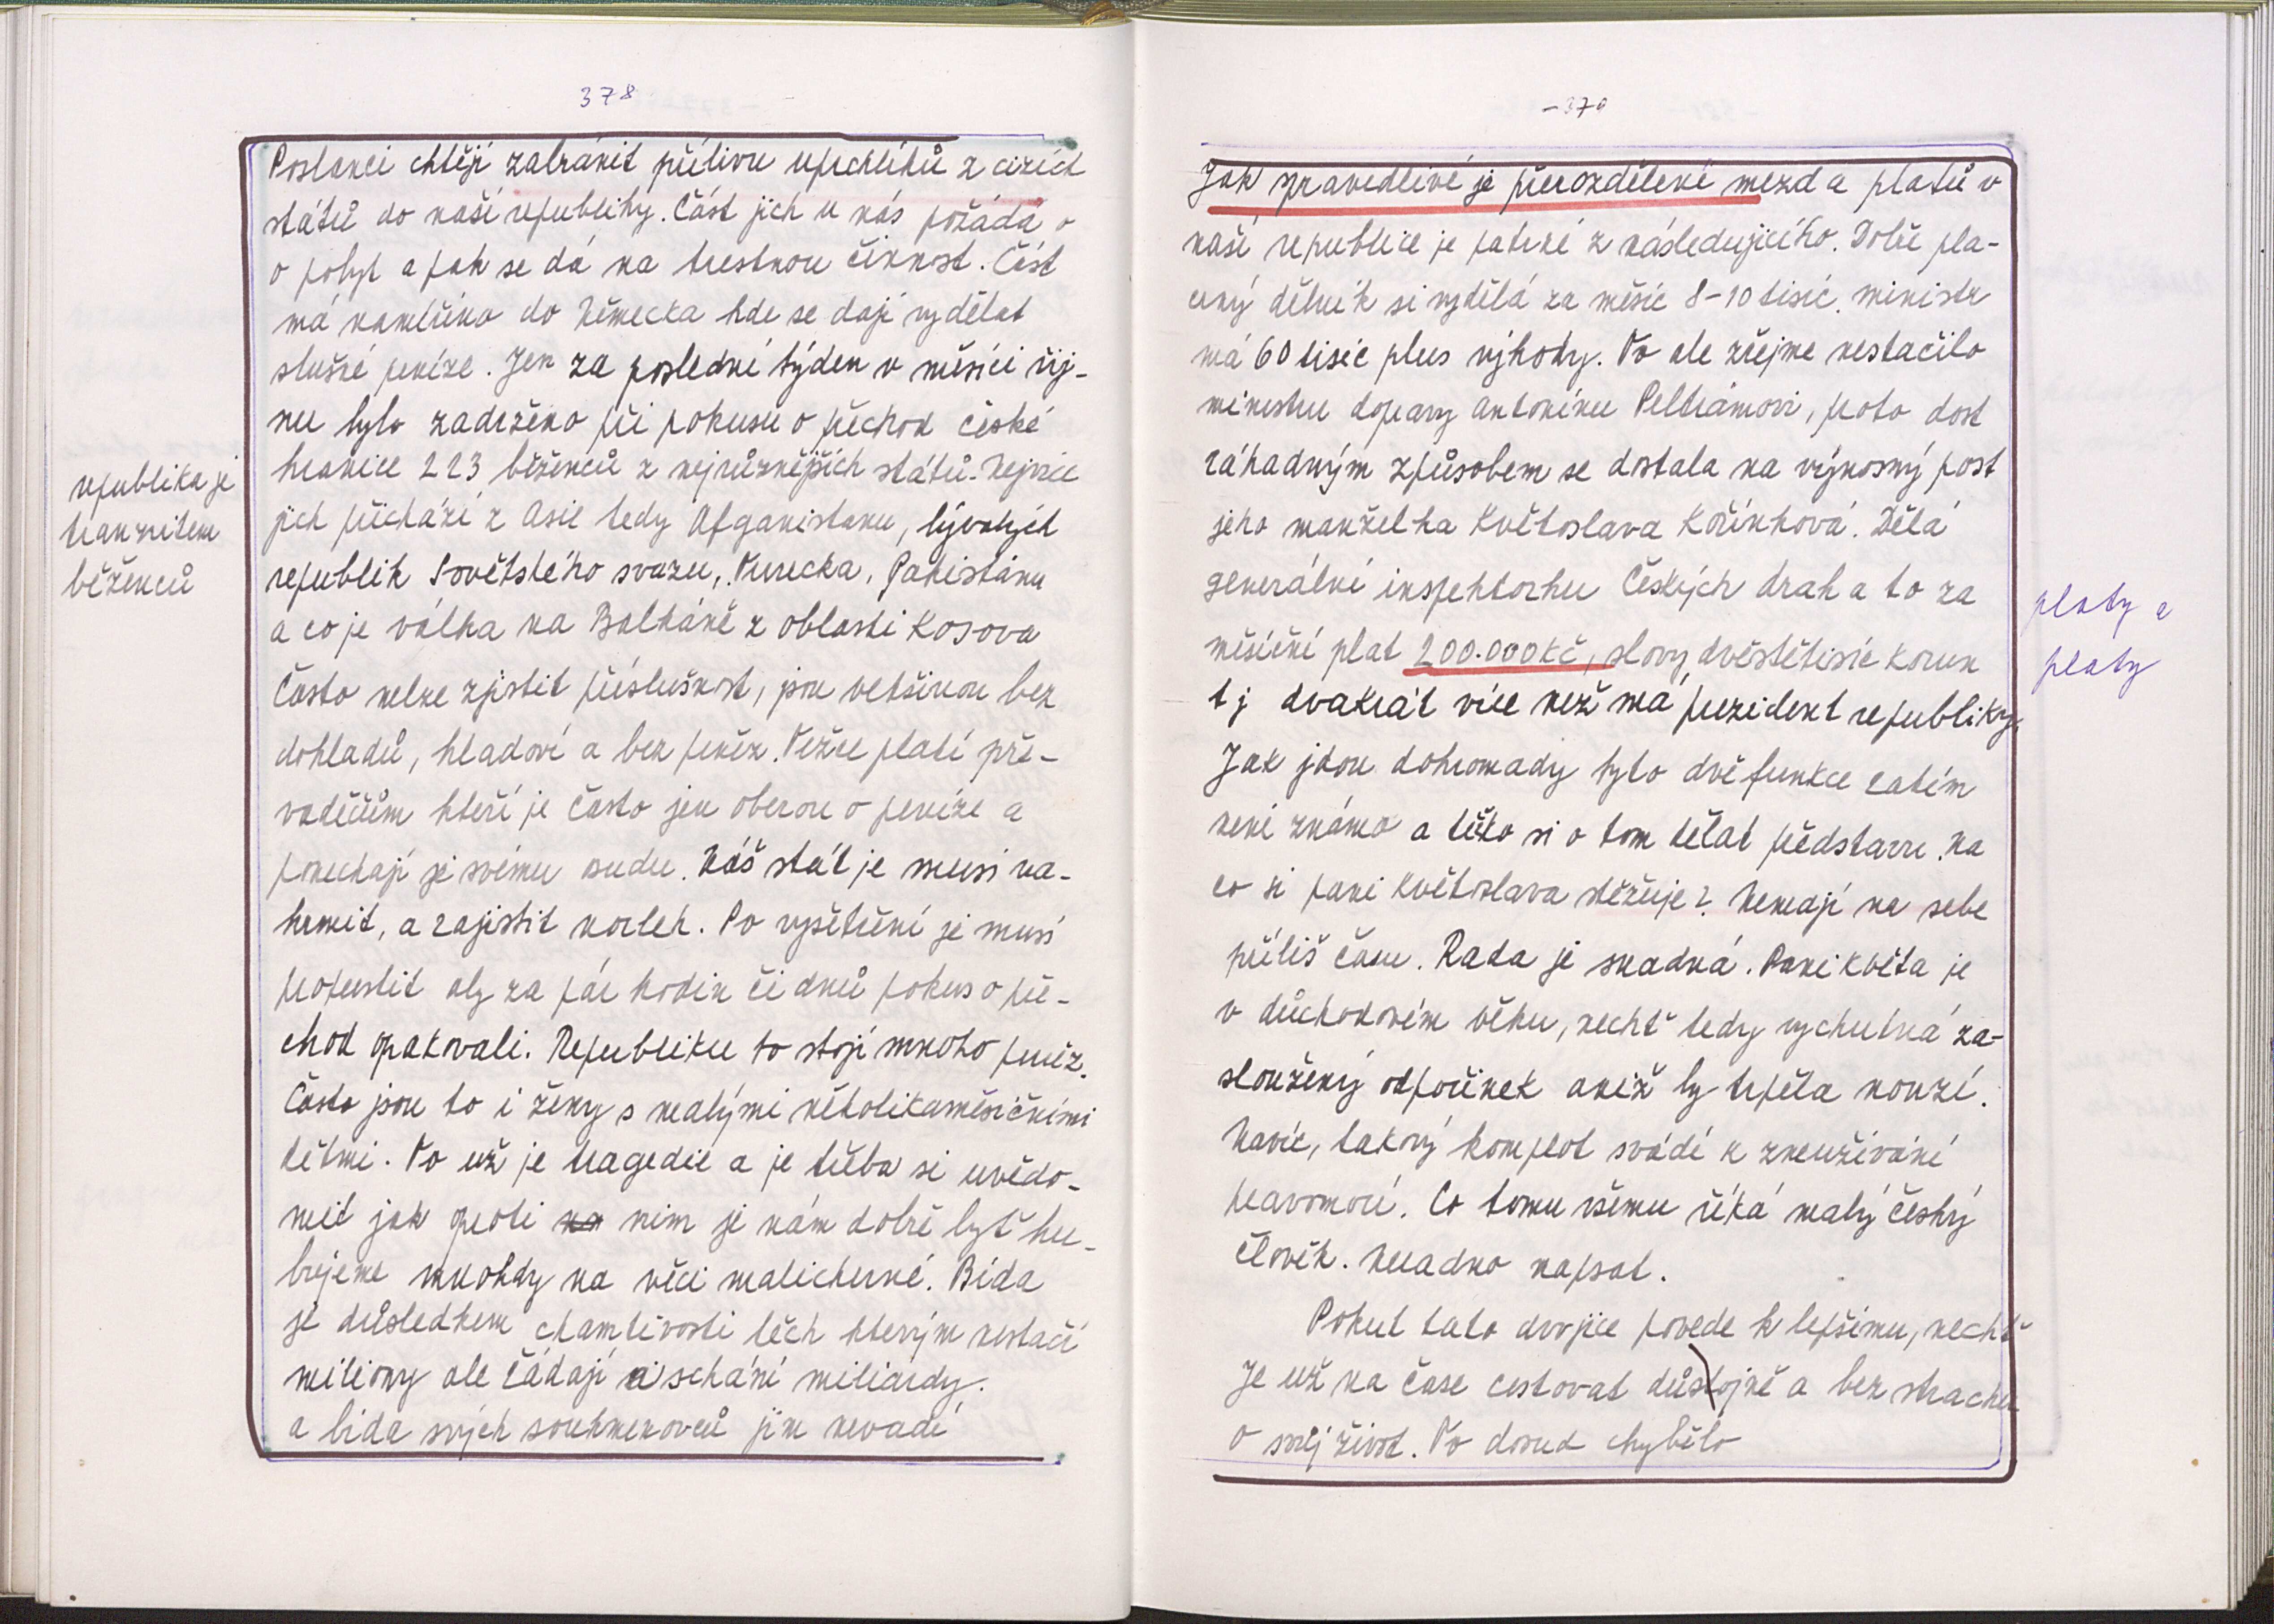 378
Poslanci chtějí zabránit přílivu uprchlíků z cizích
států do naší republiky. Část jich u nás požádá o
o pobyt a pak se dá na trestnou činnost. Část
má namířeno do Německa kde se dají vydělat
slušné peníze. Jen za poslední týden v měsíci říj-
nu bylo zadrženo při pokusu o přechod české
hranice 223 běženců z nejrůznějších států. Nejvíce
jich přichází z Asie tedy Afganistanu, bývalých
republik Sovětského svazu, Turecka, Pakistánu
a co je válka na Balkáně z oblasti Kosova
Často nelze zjistit příslušnost, jsou vetšinou bez
dokladů, hladoví a bez peněz. Težce platí pře-
vaděčům kteří je často jen oberou o peníze a
ponechají je svému osudu. Náš stát je musí na-
krmit, a zajistit nocleh. Po vyšetření je musí
propustit aby za pár hodin či dnů pokus o pře-
chod opakovali. Republiku to stojí mnoho peněz.
Často jsou to i ženy s malými několikaměsíčními
dětmi. To už je tragedie a je třeba si uvědo-
mit jak oproti na nim je nám dobře byť hu-
bujeme mnohdy na věci malicherné. Bída
je důsledkem chamtivosti těch kterým nestačí
miliony ale žádají a schání miliardy.
a bída svých soukmenovců jim nevadí
republika je
tranzitem
běženců
-379
Jak spravedlivé je přerozdělení mezd a platů v
naší republice je patrné z následujícího. Dobře pla-
cený dělník si vydělá za měsíc 8-10 tisíc. ministr
má 60 tisíc plus výhody. To ale zřejme nestačilo
ministru dopravy Antonínu Peltrámovi, proto dost
záhadným způsobem se dostala na výnosný post
jeho manželka Květoslava Kořínková. Dělá
generální inspektorku Českých drah a to za
měsíční plat 200.000 Kč, slovy dvěstětisíc korun
tj dvakrát více než má prezident republiky.
Jak jdou dohromady tyto dvě funkce zatím
není známo a těžko si o tom dělat představu. Na
co si paní Květoslava stěžuje? Nemají na sebe
příliš času. Rada je snadná. Paní Květa je
v důchodovém věku, nechť tedy vychutná za-
sloužený odpočinek aniž by trpěla nouzí.
Navíc, takový komplot svádí k zneužívání
pravomocí. Co tomu všemu říká malý český
člověk. Neradno napsat.
Pokud tato dvojice povede k lepšímu, nechť
Je už na čase cestovat důstojně a bez strachu
o svůj život. To dosud chybělo
platy a
platy